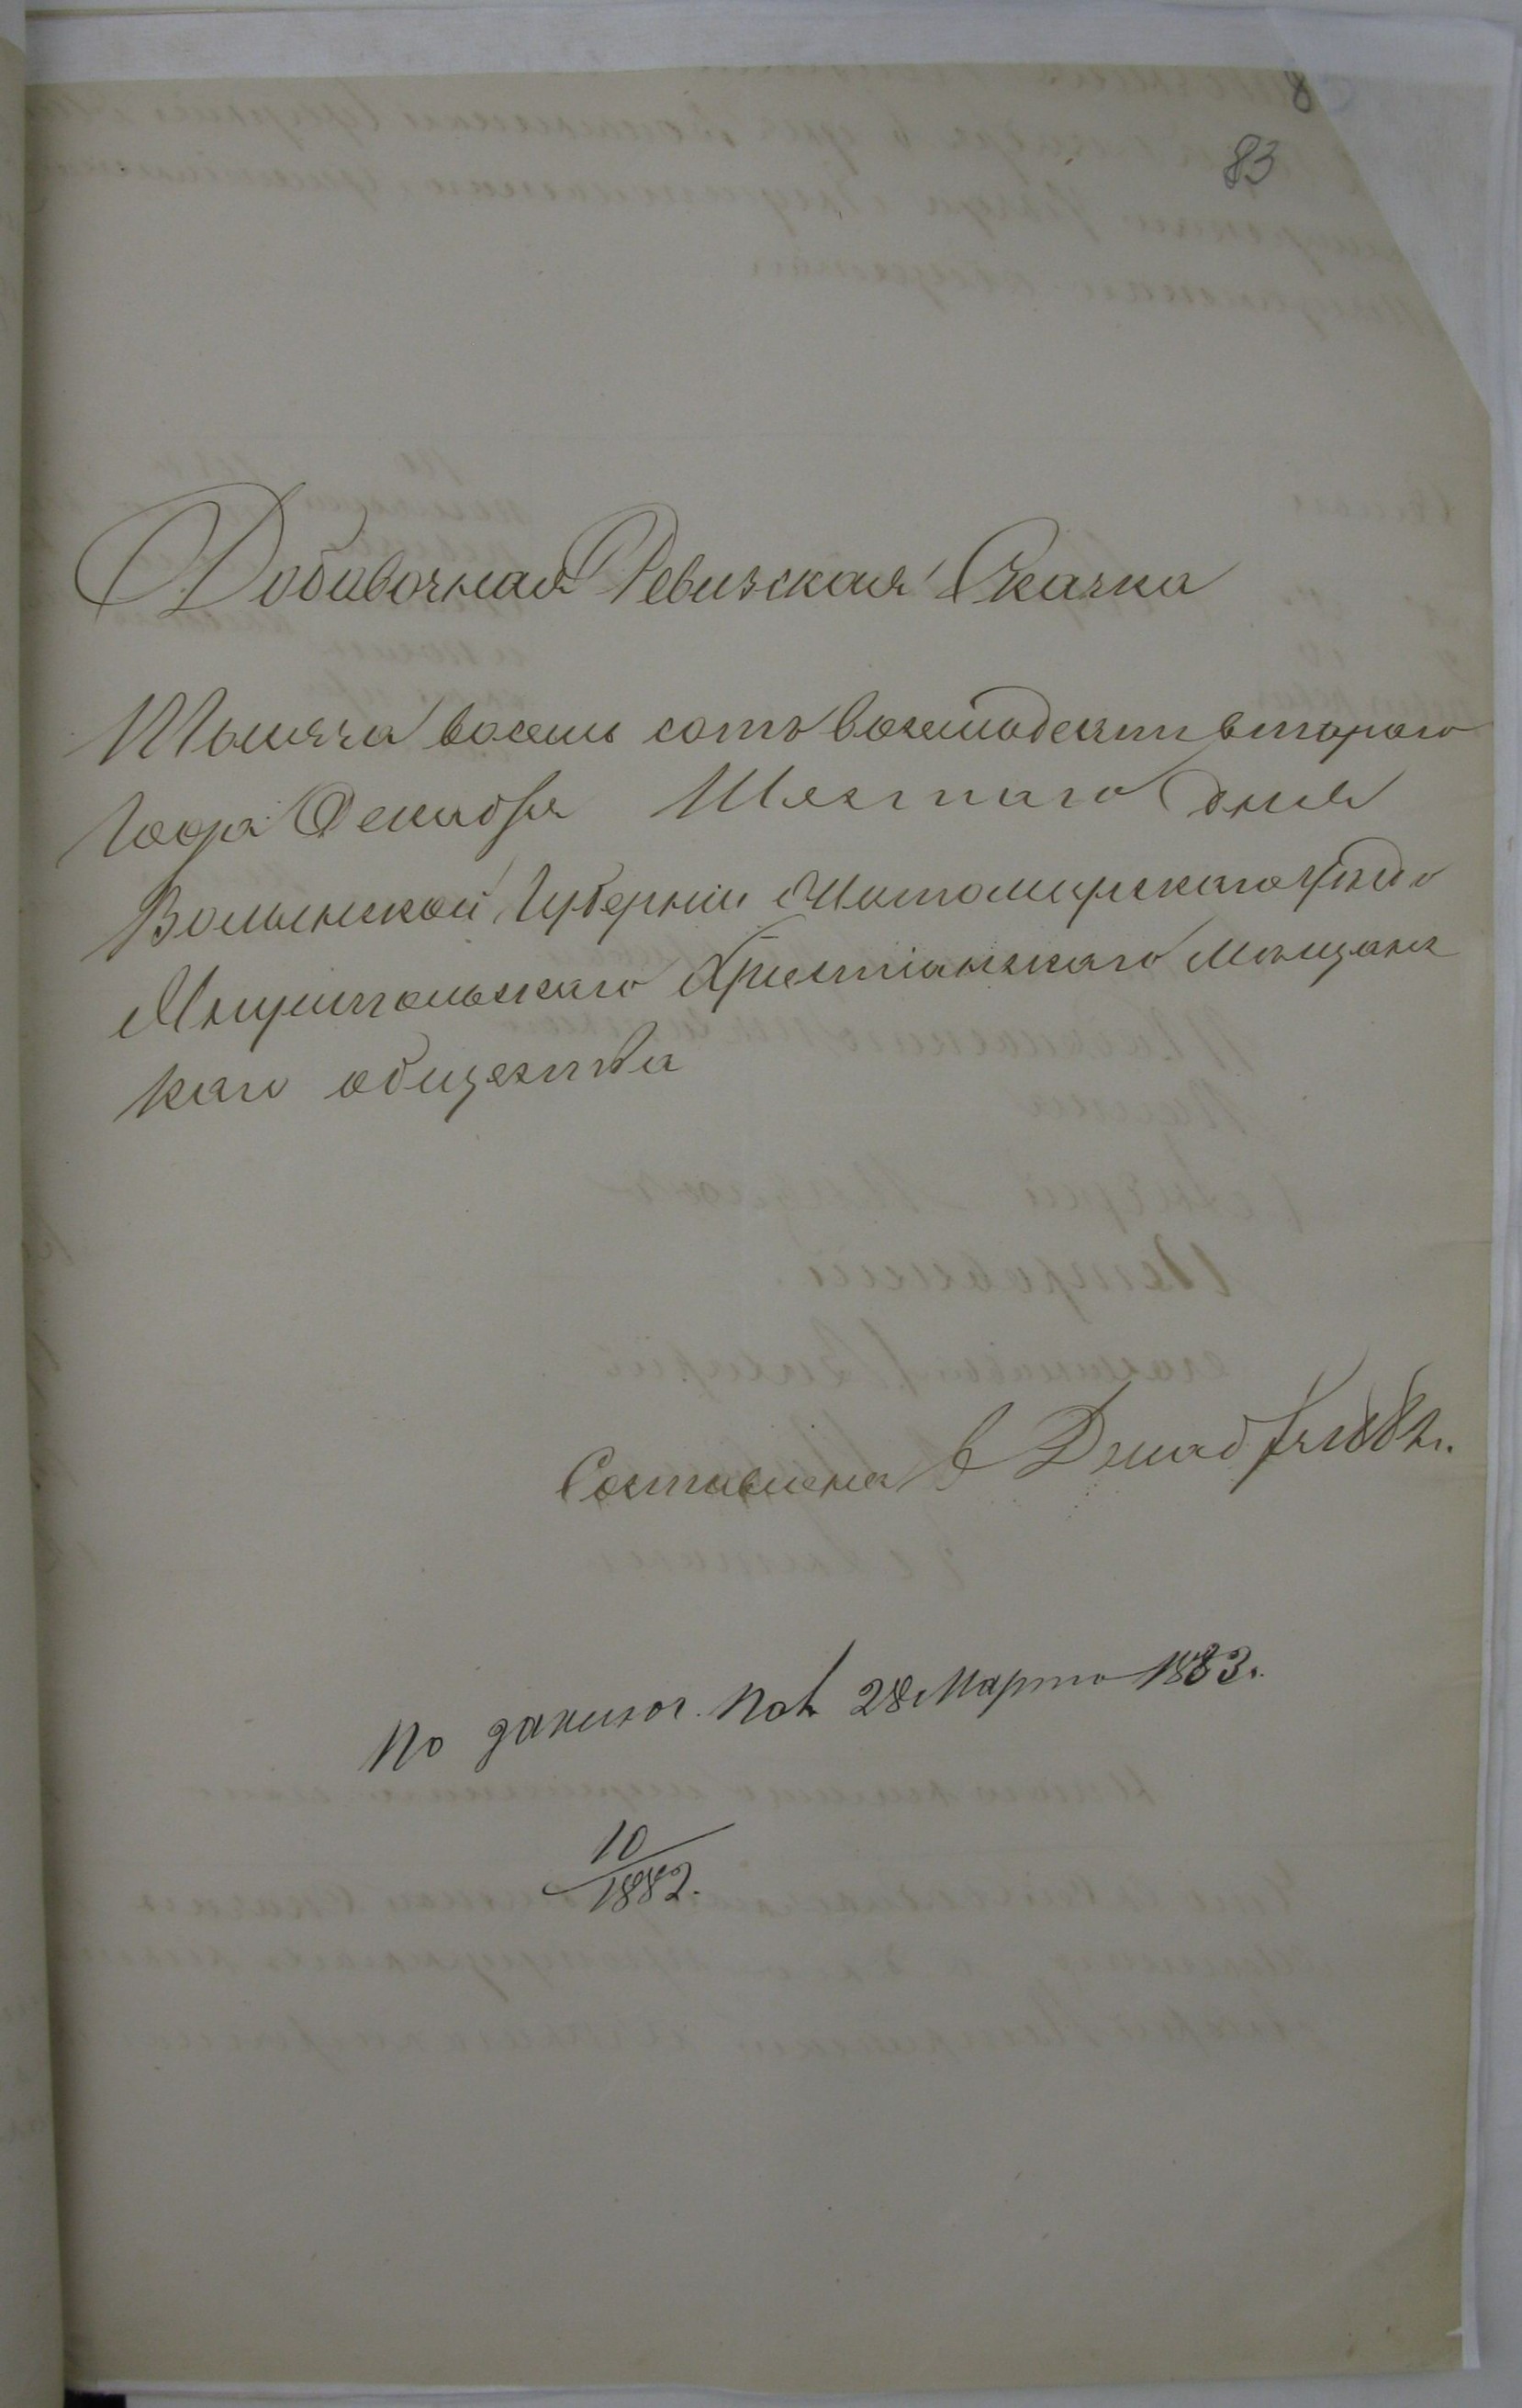 8
83
Добавочная Ревизская Сказка
Тысяча восемь сотъ восемьдесятъ втораго
Года Декабря Шестаго дня
Волынской Губерніи Житомирскаго уѣзда
Христіанскаго Мѣщанс
каго общества
Составлена в Декабря 1882 г.
По 28 Марта 1883 г.
10
1882.